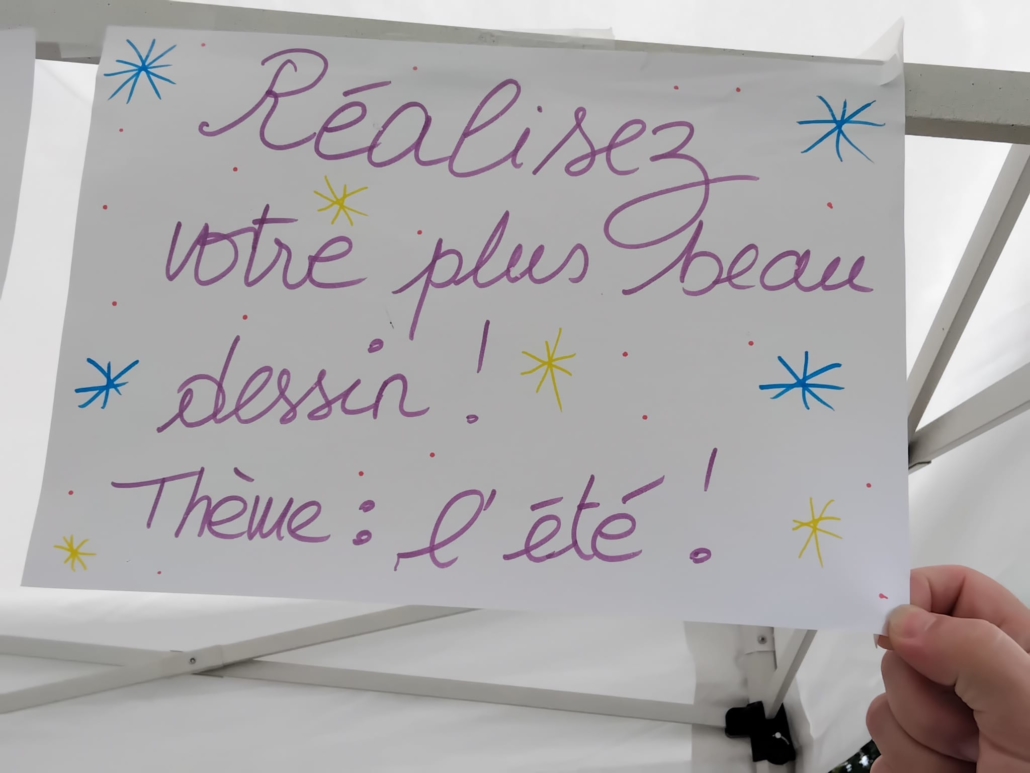 Réalisez
votre plus beau
dessin !
Thème : l'été !